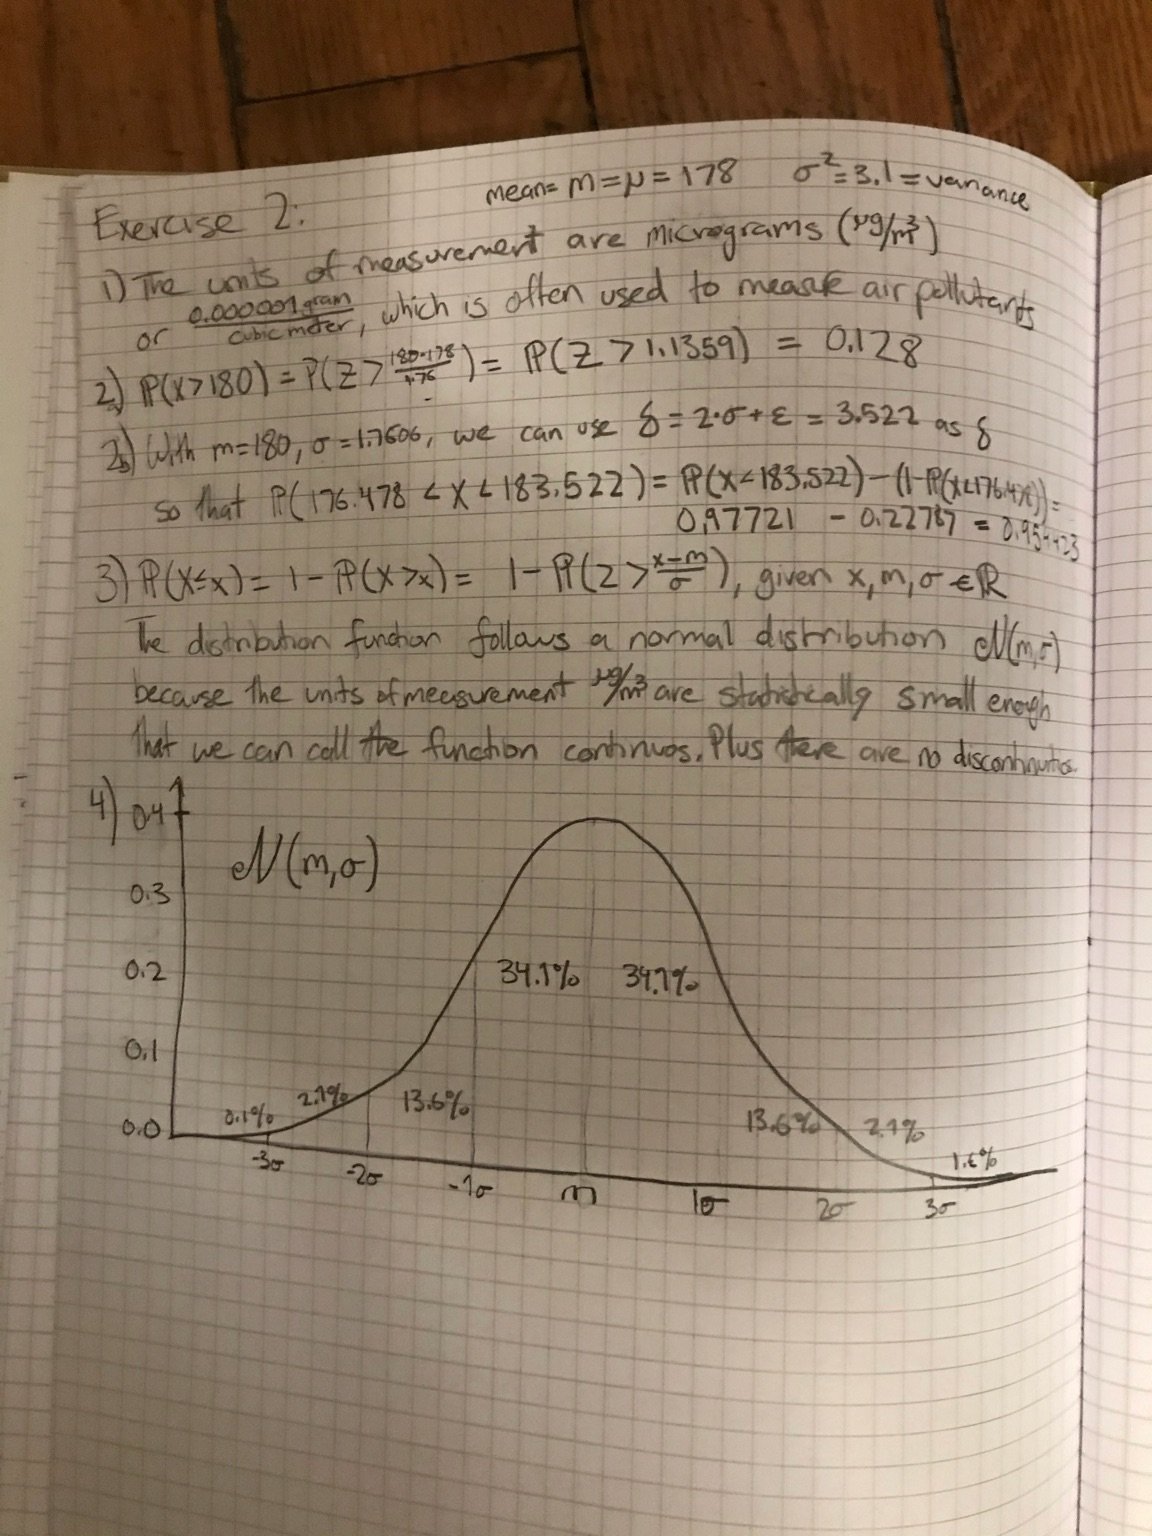 mean = m = μ = 178 σ² = 3.1 = variance
Exercise 2:
1) The units of measurement are micrograms (μg/m³)
or 0.000001 gram / cubic meter, which is often used to measure air pollutants
2a) ℙ(X > 180) = ℙ(Z > (180-178)/1.76) = ℙ(Z > 1.1359) = 0.128
2b) With m = 180, σ = 1.7606, we can use δ = 2·σ + ε = 3.522 as δ
so that ℙ(176.478 < X < 183.522) = ℙ(X < 183.522) - (1-ℙ(X < 176.478)) =
0.97721 - 0.22787 =
3) ℙ(X ≤ x) = 1 - ℙ(X > x) = 1 - ℙ(Z > (x-m)/σ), given x, m, σ ∈ ℝ
The distribution function follows a normal distribution 𝒩(m,σ)
because the units of measurement μg/m³ are statistically small enough
that we can call the function continuos. Plus there are no
4) 0.4
𝒩(m,σ)
0.3
0.2 34.1% 34.1%
0.1
0.0 0.1% 2.1% 13.6% 13.6% 2.1% 1.6%
-3σ -2σ -1σ m 1σ 2σ 3σ